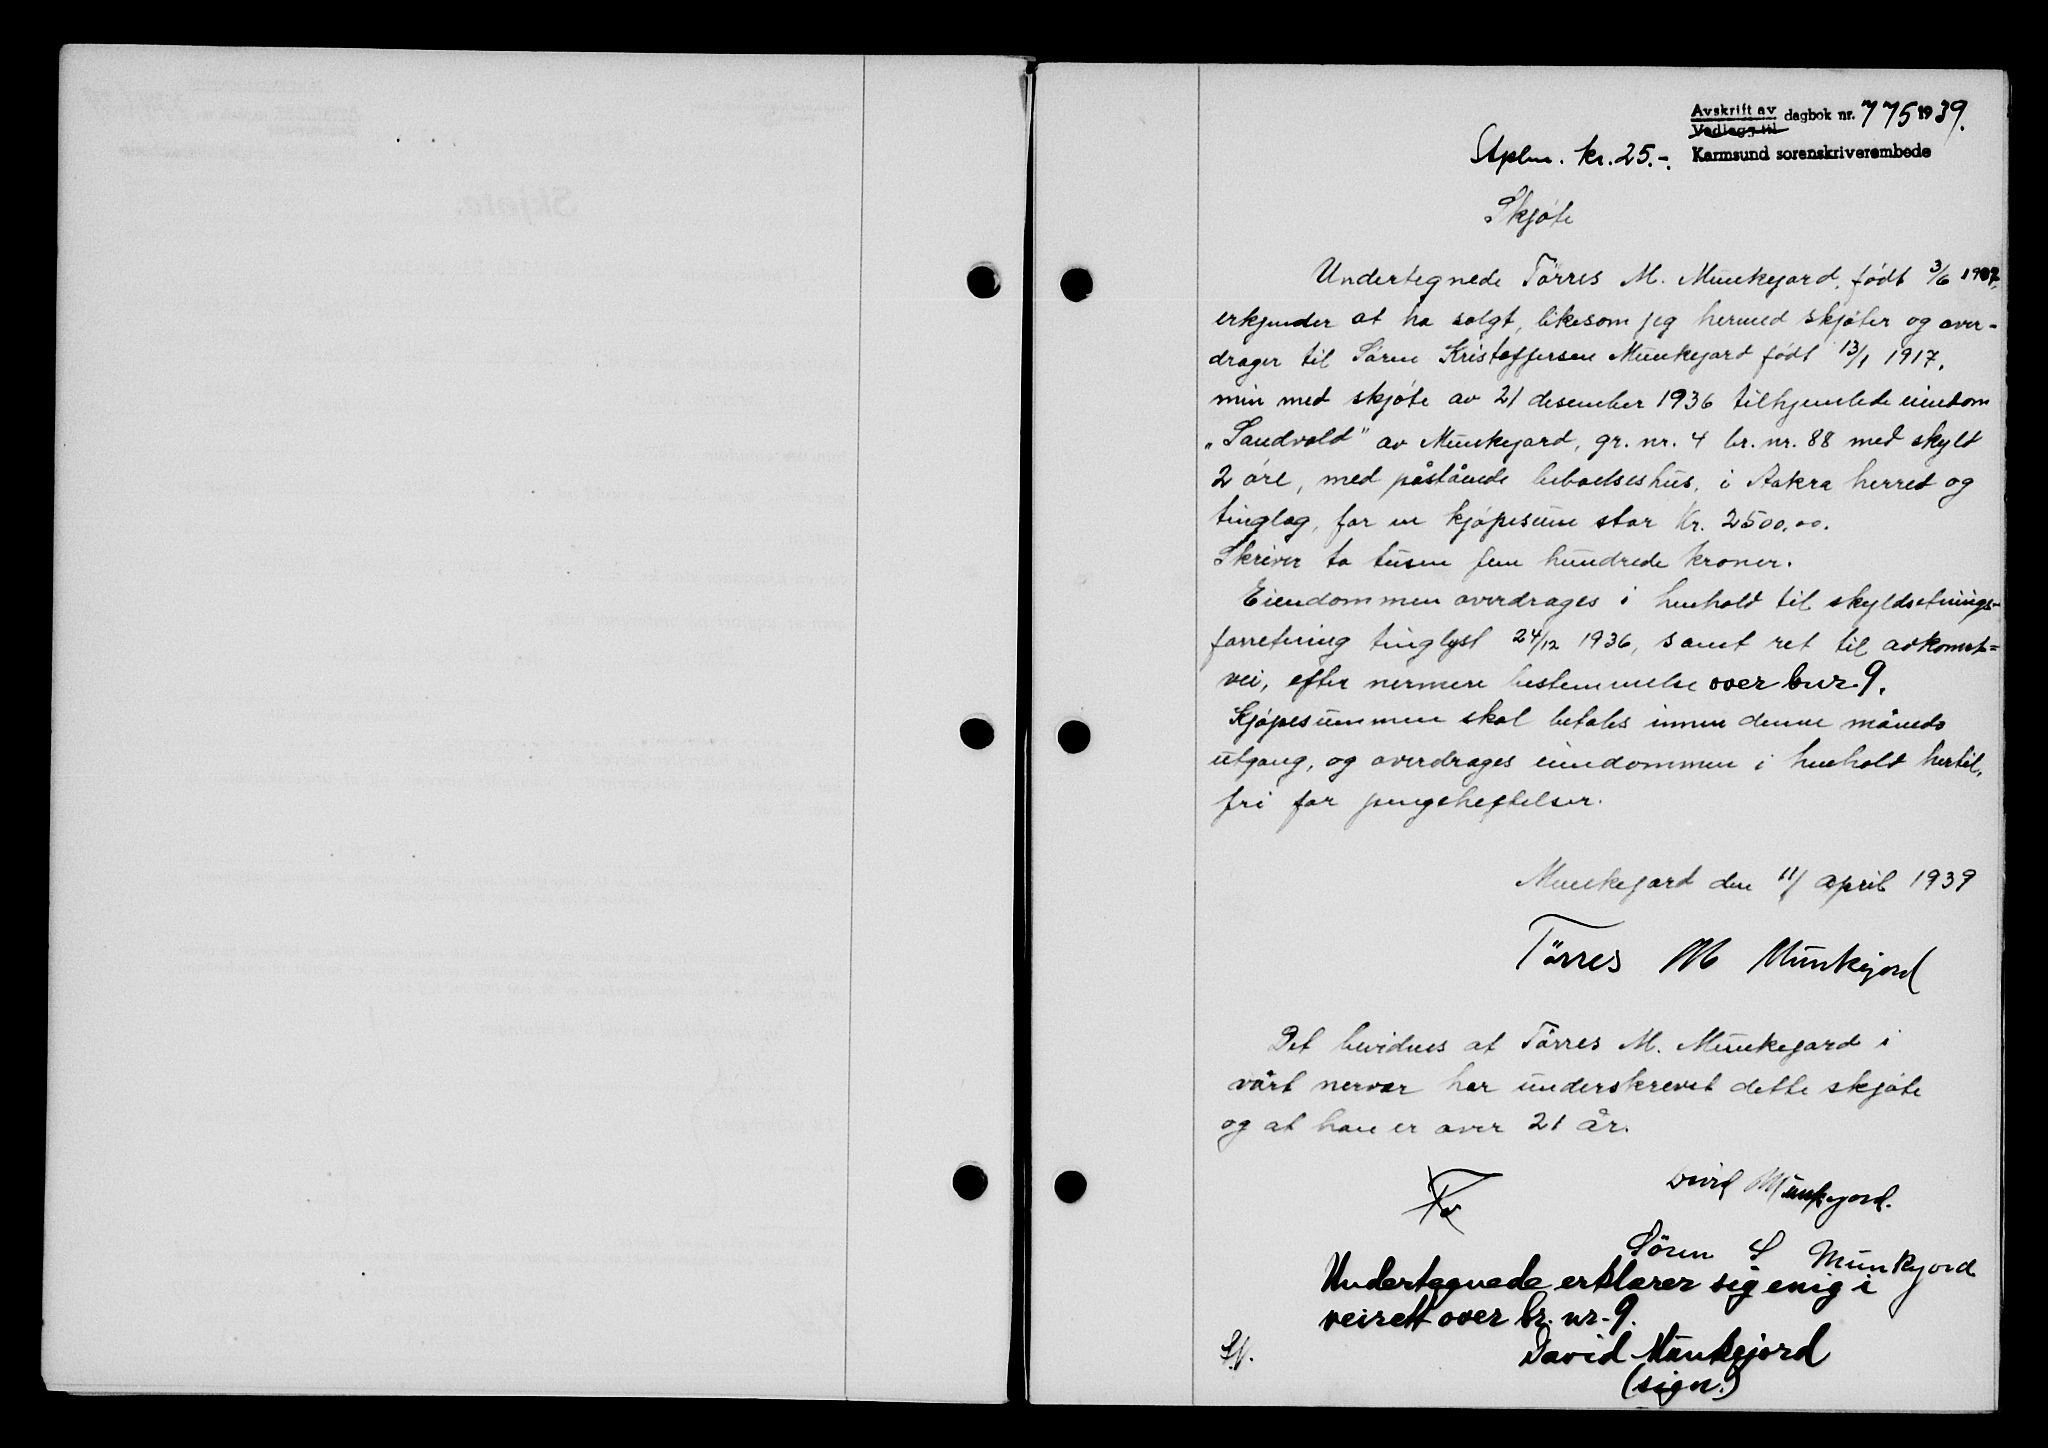 Avskrift av
Vedlegg til
dagbok nr. 775 1939.
Karmsund sorenskriverembede
Stplm. kr. 25.-.
Skjøte
Undertegnede Törres M. Munkejord, født 3/6 1907,
erkjender at ha solgt, likesom jeg hermed skjøter og over-
drager til Sören Kristoffersen Munkejord født 13/1 1917,
min med skjøte av 21 desember 1936 tilhjemlede eiendom
„Sandvold" av Munkejord, gr. nr. 4 br. nr. 88 med skyld
2 øre, med påstående beboelseshus, i Aakra herred og
tinglag, for en kjøpesum stor Kr. 2500,00.
Skriver to tusen fem hundrede kroner.
Eiendommen overdrages i henhold til skyldsetnings-
forretning tinglyst 24/12 1936, samt ret til adkomst=
vei, efter nermere bestemmelse over bnr 9.
Kjøpesummen skal betales innen denne måneds
utgang, og overdrages eiendommen i henhold hertil,
fri for pengeheftelser.
Munkejord den 11/ april 1939
Törres M Munkejord
Det bevidnes at Törres M. Munkejord i
vårt nervær har underskrevet dette skjøte
og at han er over 21 år.
David Munkejord.
Sören S Munkejord
Undertegnede erklærer sig enig i
veirett over br. nr. 9.
David Munkejord
(sign.)